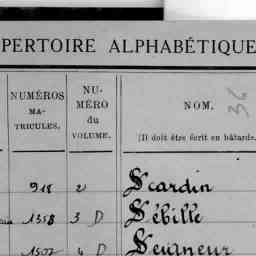 PERTOIRE ALPHABÉTIQUE
NUMÉROS MA- TRICULES.
NU- MÉRO du VOLUME.
NOM.
(1) doit être écrit en bâtarde.
36
918 2 Scardin
1358 3 D Sébille
1507 4 D Seigneur